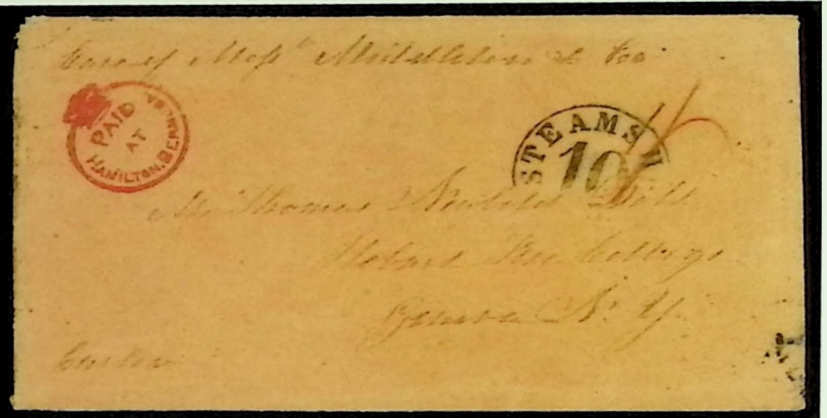 Care of Messrs Middleton & Co
PAID AT HAMILTON, BERMUDA
STEAMSH
10
Mr Thomas
Hobart Free College
Geneva N. Y.